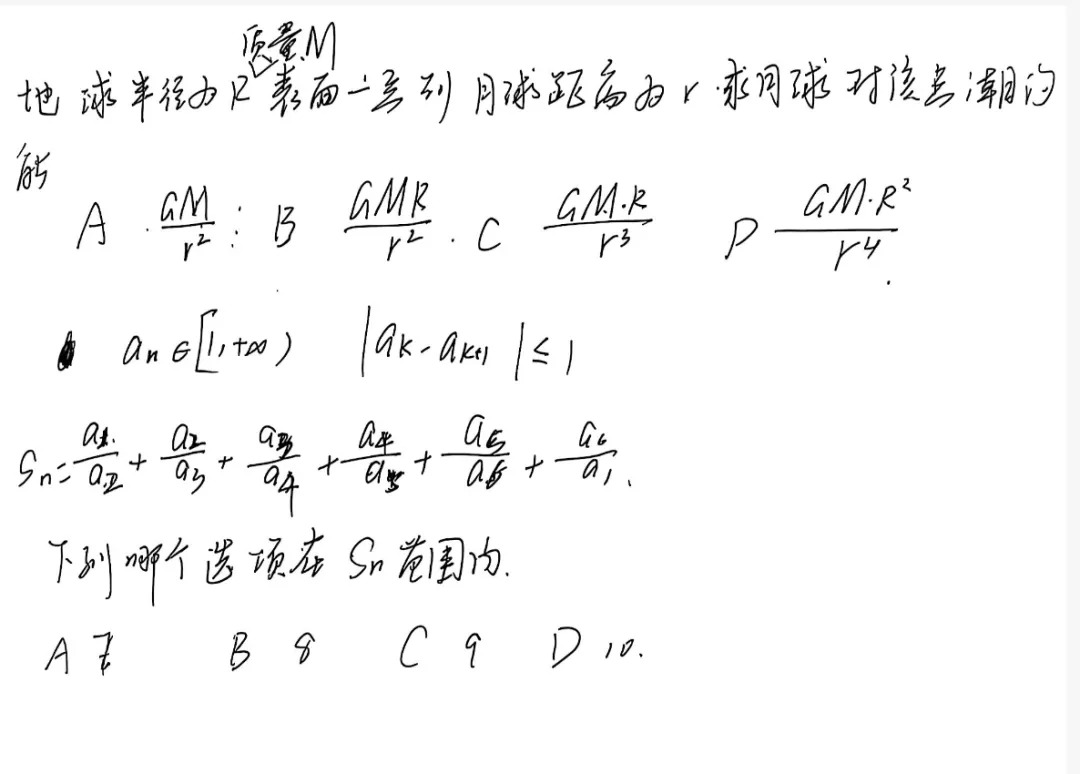 质量M
地球半径为R 表面一点到月球距离为r.求月球对该点潮汐
能
A. GM/r² : B GMR/r² . C GM·R/r³ D GM·R²/r⁴.
aₙ∈[1,+∞) |aₖ-aₖ₊₁|≤1
Sₙ= a₁/a₂ + a₂/a₃ + a₃/a₄ + a₄/a₅ + a₅/a₆ + a₆/a₁.
下列哪个选项在Sₙ范围内.
A 7 B 8 C 9 D 10.